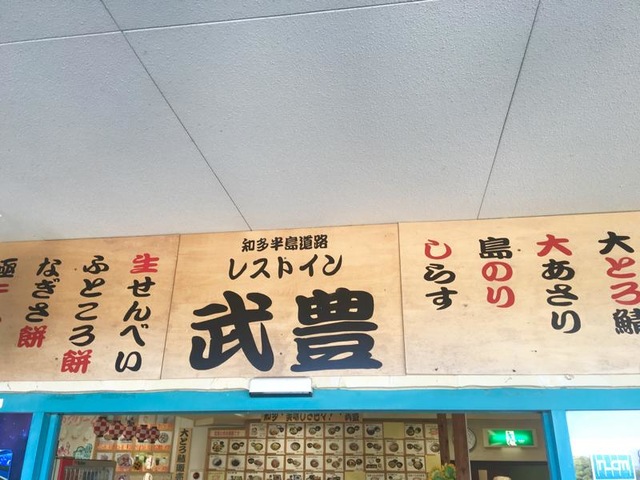 知多半島道路
レストイン
武豊
大とろ鯖
大あさり
島のり
しらす
生せんべい
ふところ餅
なぎさ餅